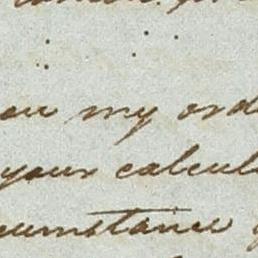 my ord
your calcul
cumstance